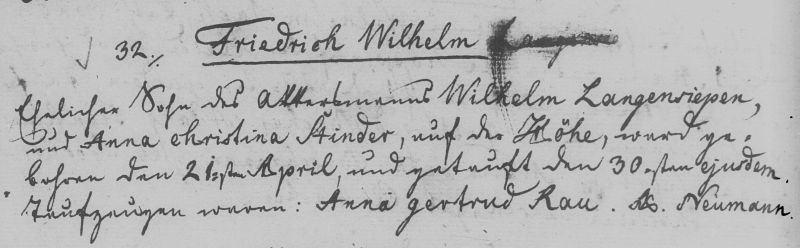 32./. Friedrich Wilhelm
Ehelicher Sohn des Akkersmanns Wilhelm Langensiepen,
und Anna Christina Stinder, auf der Höhe, ward ge-
bohren den 21=sten April, und getauft den 30=sten ejusdem.
Taufzeugen waren: Anna gertrud Rau. Neumann.